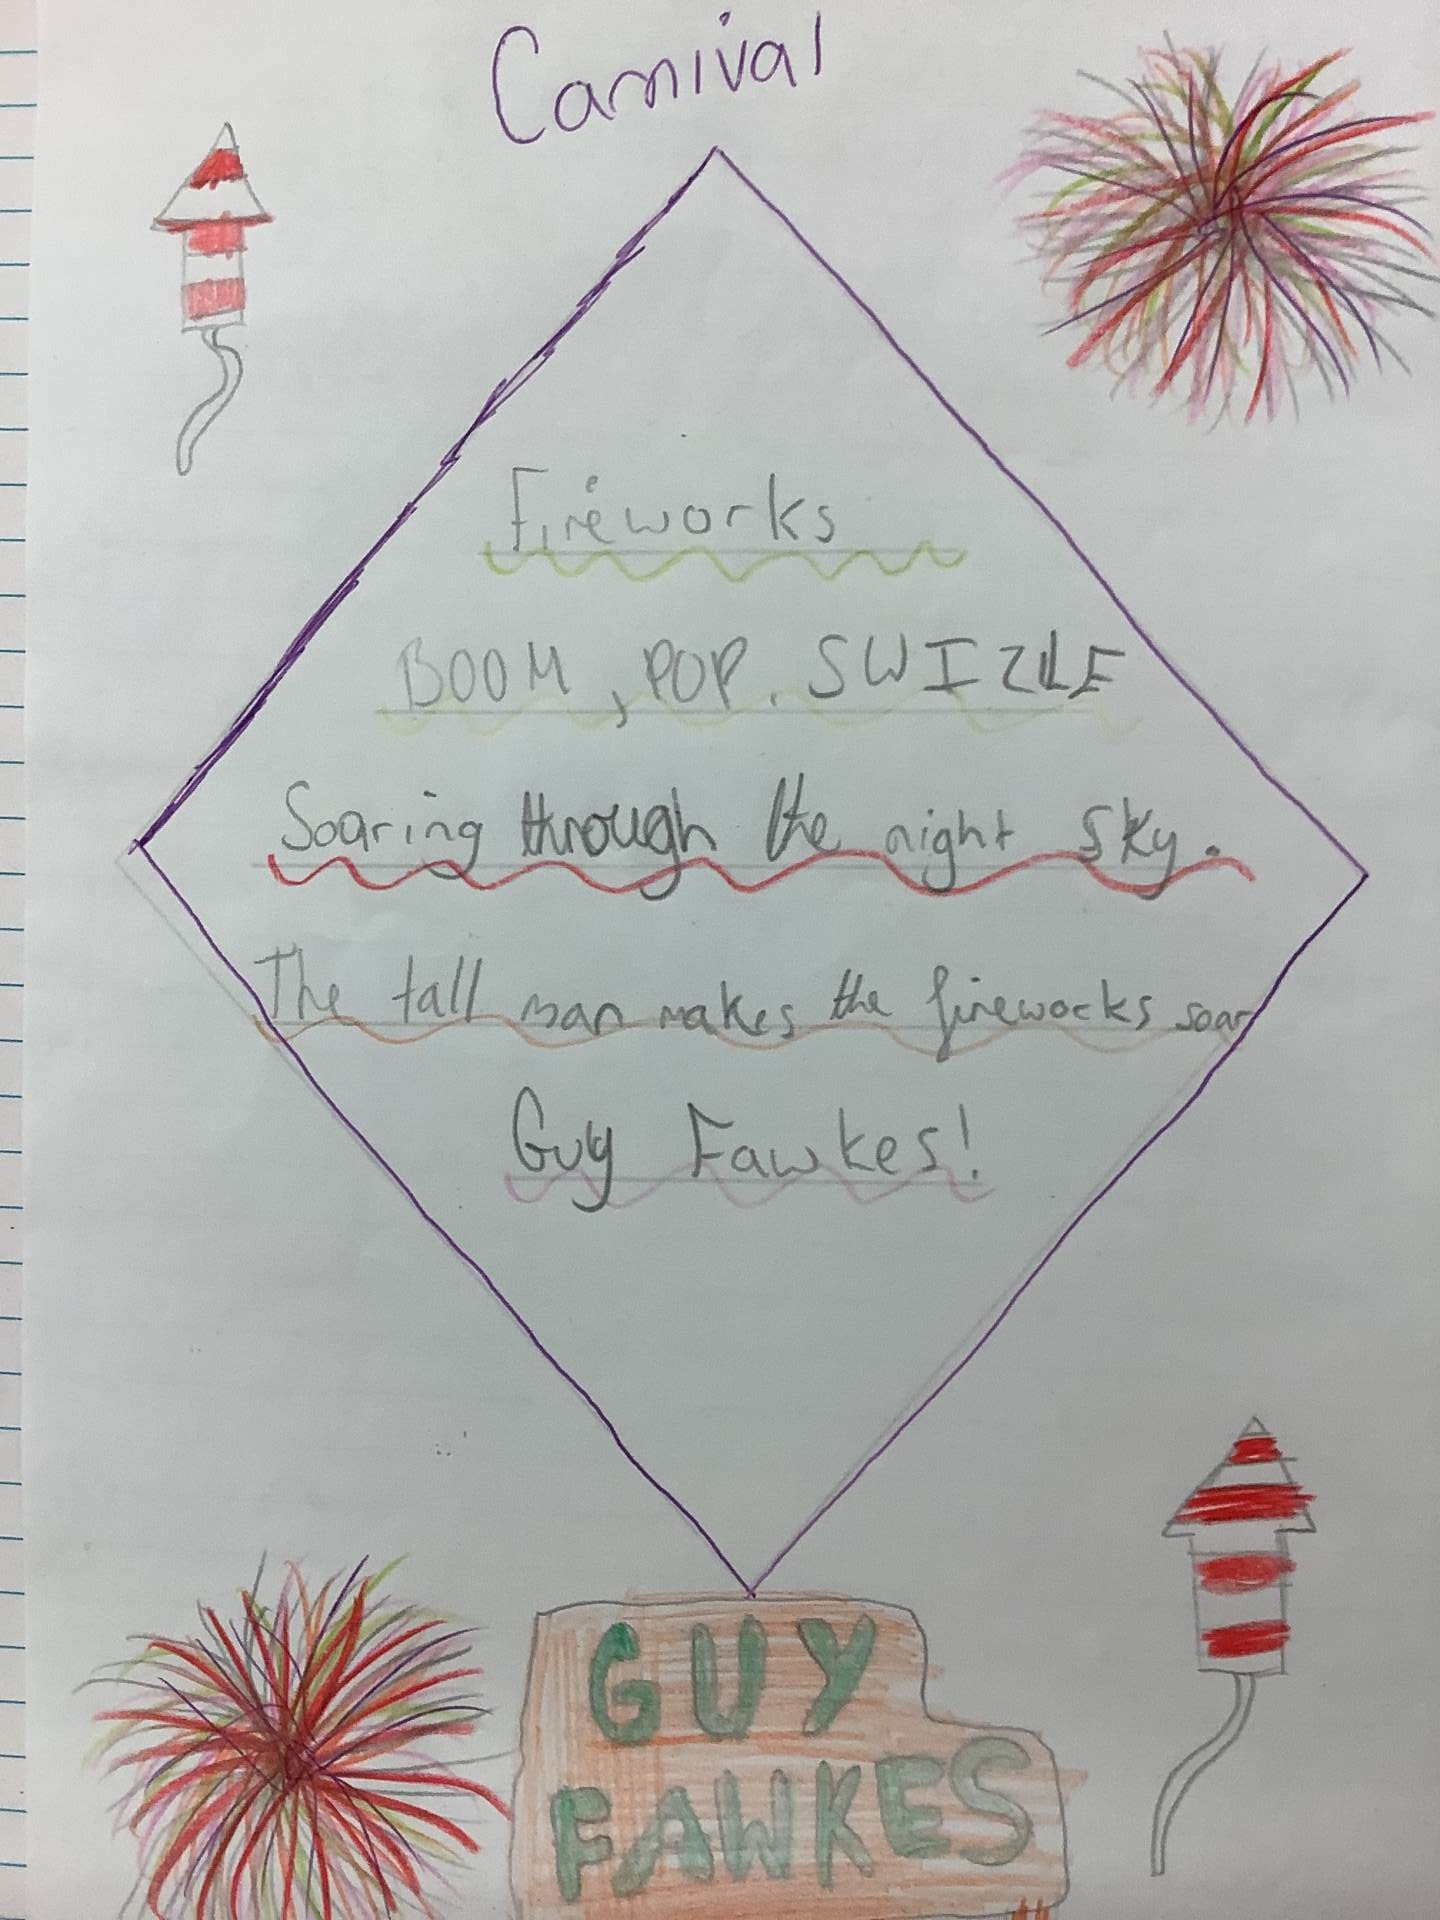 Carnival
Fireworks
BOOM, POP, SWIZLE
Soaring through the night sky.
The tall man makes the fireworks soar
Guy Fawkes!
GUY
FAWKES